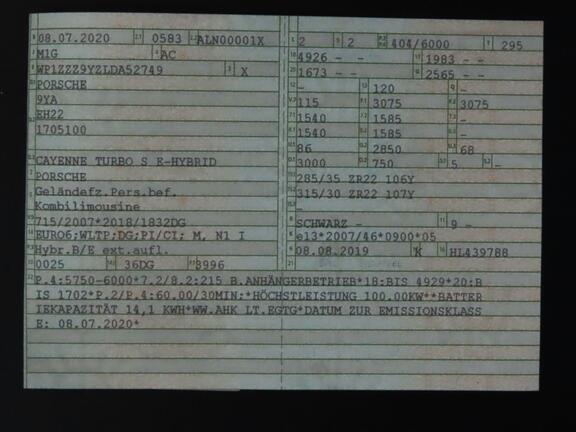 08.07.2020 0583 ALN00001X
M1G AC
WP1ZZZ9YZLDA52749 X
PORSCHE
9YA
EH22
1705100
CAYENNE TURBO S E-HYBRID
PORSCHE
Geländefz.Pers.bef.
Kombilimousine
715/2007*2018/1832DG
EURO6;WLTP;DG;PI/CI; M, N1 I
Hybr.B/E ext.aufl.
0025 36DG 3996
2 2 404/6000 295
4926 - - 1983 - -
1673 - - 2565 - -
- 120 -
115 3075 3075
1540 1585 -
1540 1585 -
86 2850 68
3000 750 5 -
285/35 ZR22 106Y
315/30 ZR22 107Y
-
SCHWARZ - 9 -
e13*2007/46*0900*05
08.08.2019 K HL439788
P.4:5750-6000*7.2/8.2:215 B.ANHÄNGERBETRIEB*18:BIS 4929*20:B
IS 1702*P.2/P.4:60.00/30MIN;*HÖCHSTLEISTUNG 100.00KW**BATTER
IEKAPAZITÄT 14,1 KWH*WW.AHK LT.EGTG*DATUM ZUR EMISSIONSKLASS
E: 08.07.2020*